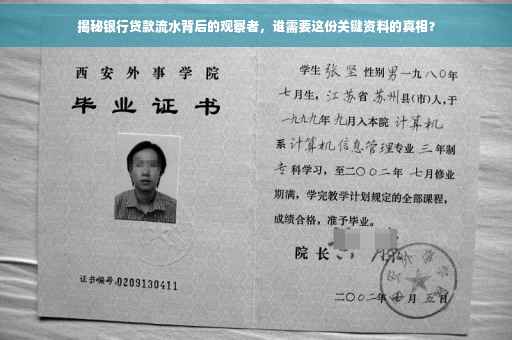 揭秘银行贷款流水背后的观察者，谁需要这份关键资料的真相？
西安外事学院
毕业证书
证书编号:0209130411
学生 张坚 性别 男 一九八〇年
七月生，江苏省 苏州 县(市)人，于
一九九九年 九月入本院 计算机
系 计算机信息管理 专业 三 年制
专 科学习，至二〇〇二年 七月修业
期满，学完教学计划规定的全部课程，
成绩合格，准予毕业。
院长
二〇〇二年 七 月 五 日